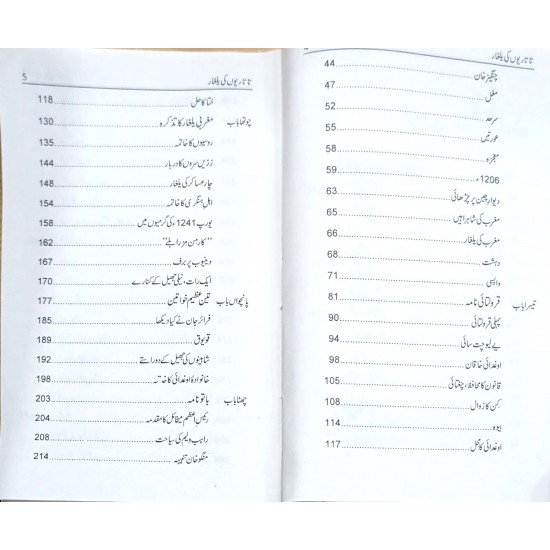 تاتاریوں کی یلغار
چنگیز خان 44
مغل 47
سرحد 52
عورتیں 55
معجزہ 58
1206ء 59
دیوار چین پر چڑھائی 63
مغرب کی شاہراہیں 65
مغرب کی یلغار 66
دہشت 68
واپسی 71
تیسرا باب قرولتائی نامہ 81
پہلی قرولتائی 90
یے لیو چت سائی 94
اوغدائی خاقان 98
قانون کا محافظ، چغتائی 105
کن کا زوال 108
بیوہ 114
اوغدائی کا محل 117
تاتاریوں کی یلغار 5
ختا کا محل 118
چوتھا باب مغربی یلغار کا تذکرہ 130
روسیوں کا خاتمہ 135
زریں سروں کا دربار 144
چار عساکر کی یلغار 148
اہل ہنگری کا خاتمہ 154
یورپ 1241ء کی گرمیوں میں 158
"کارمن مزرابلے" 162
ڈینیوب پر برف 167
ایک رات، نیلی جھیل کے کنارے 170
پانچواں باب تین عظیم خواتین 177
فرائر جان نے کیا دیکھا 185
قویوق 189
شاہینوں کی جھیل کے دو راستے 192
خانوادۂ اوغدائی کا خاتمہ 198
چھٹا باب باتو نامہ 203
رئیس اعظم میکائل کا مقدمہ 204
راہب ولیم کی سیاحت 208
منگو خان 214